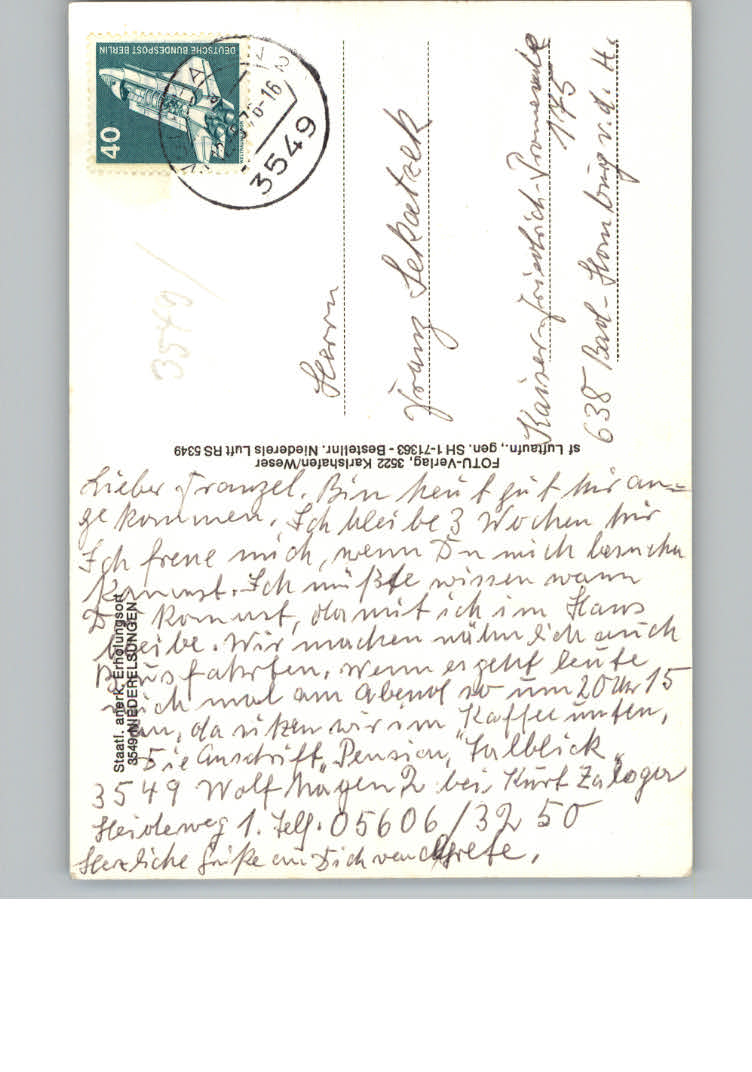 DEUTSCHE BUNDESPOST BERLIN
40
3549
3549
Herrn
Franz
Kaiser-Friedrich-Promenade
175
638 Bad-Homburg v. d. H.
FOTU-Verlag, 3522 Karlshafen/Weser
sf Luftaufn., gen. SH 1-71363 - Bestellnr. Niederels Luft RS 5349
Staatl. anerk. Erholungsort
3549 NIEDERELSUNGEN
Lieber Franzel. Bin heut gut hir an=
gekommen. Ich bleibe 3 Wochen hir
Ich freue mich, wenn Du mich besuchen
kommst. Ich müßte wissen wann
Du kommst, damit ich im Haus
bleibe. Wir machen nähmlich auch
Busfahrten, wenn es geht leute
mich mal am Abend so um 20 Uhr 15
an, da sitzen wir im Kaffee unten,
Die Anschrift „Pension„ Talblick„
3549 Wolfhagen 2 bei Kurt Zaloga
Heideweg 1. Telf. 05606/3250
Herzliche Grüße an Dich von Grete.